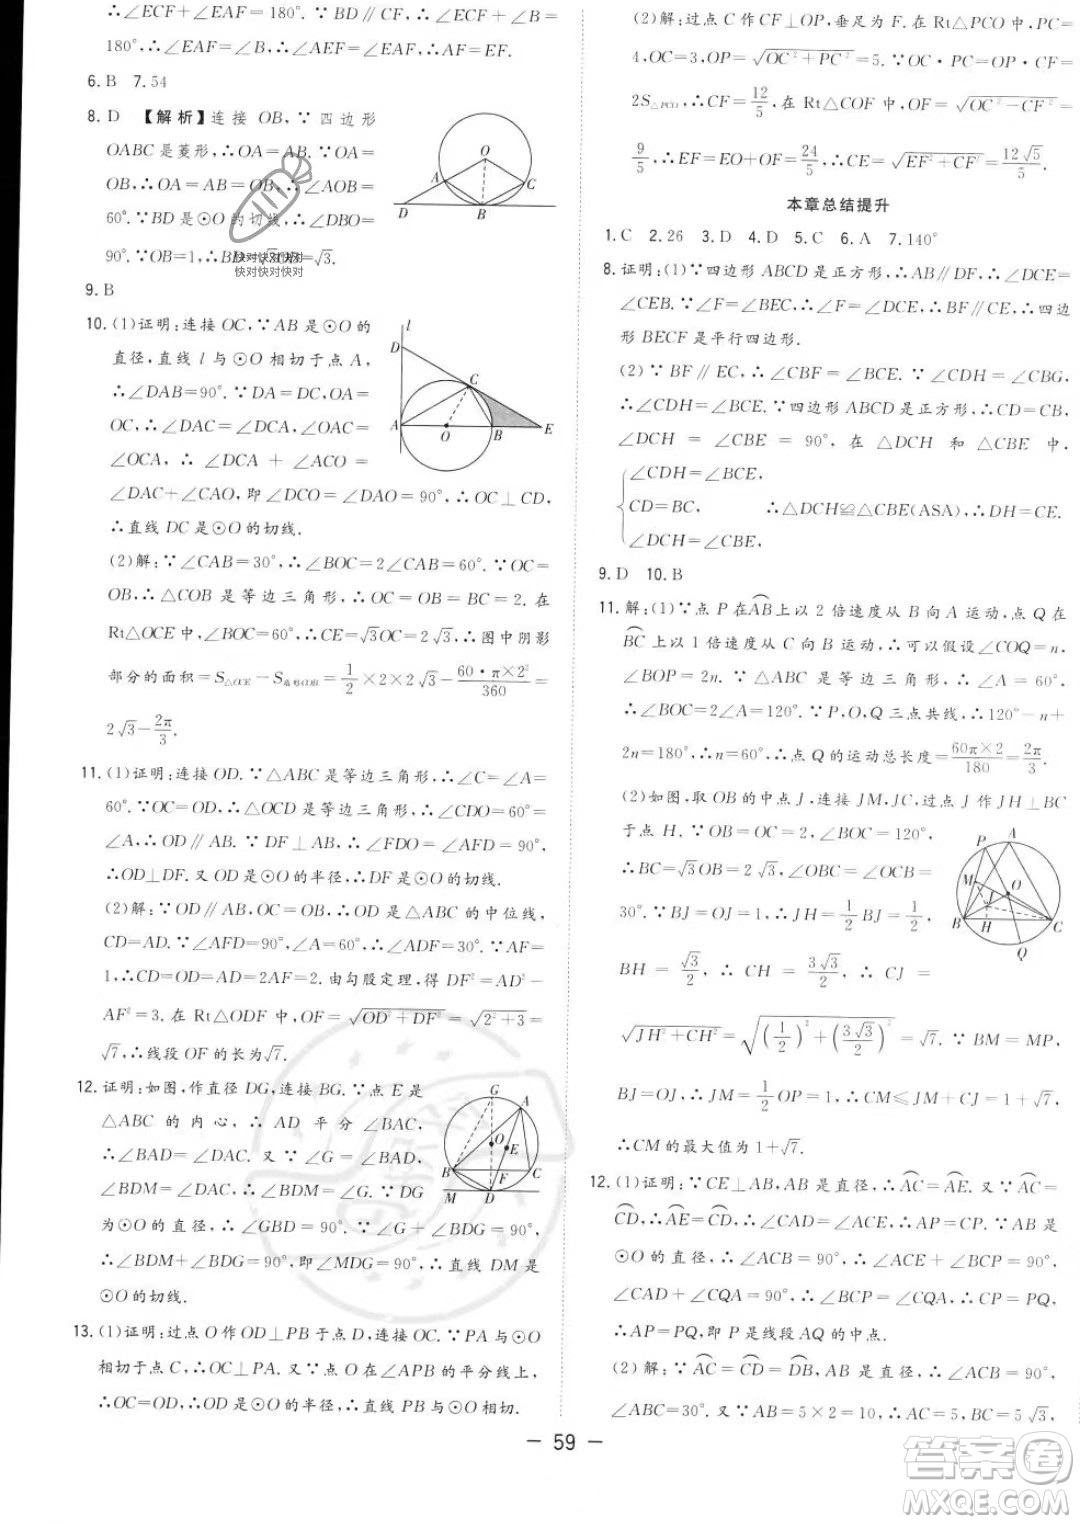 ∴∠ECF+∠EAF=180°. ∵BD∥CF,∴∠ECF+∠B=
180°,∴∠EAF=∠B,∴∠AEF=∠EAF,∴AF=EF.
6. B 7. 54
8. D 【解析】连接 OB,∵四边形
OABC是菱形,∴OA=AB.∵OA=
OB,∴OA=AB=OB,∴∠AOB=
60°.∵BD是⊙O的切线,∴∠DBO=
90°.∵OB=1,∴BD=√3OB=√3.
9. B
10. (1)证明:连接OC,∵AB是⊙O的
直径,直线 l 与⊙O相切于点A,
∴∠DAB=90°.∵DA=DC,OA=
OC,∴∠DAC=∠DCA,∠OAC=
∠OCA,∴∠DCA+∠ACO=
∠DAC+∠CAO,即∠DCO=∠DAO=90°,∴OC⊥CD,
∴直线DC是⊙O的切线.
(2)解:∵∠CAB=30°,∴∠BOC=2∠CAB=60°.∵OC=
OB,∴△COB是等边三角形,∴OC=OB=BC=2. 在
Rt△OCE中,∠BOC=60°,∴CE=√3OC=2√3,∴图中阴影
部分的面积=S△OCE−S扇形COB=1/2×2×2√3−60·π×2²/360=
2√3−2π/3.
11. (1)证明:连接OD.∵△ABC是等边三角形,∴∠C=∠A=
60°.∵OC=OD,∴△OCD是等边三角形,∴∠CDO=60°=
∠A,∴OD∥AB.∵DF⊥AB,∴∠ODF=∠AFD=90°,
∴OD⊥DF.又∵OD是⊙O的半径,∴DF是⊙O的切线.
(2)解:∵OD∥AB,OB=OC,∴OD是△ABC的中位线,
CD=AD.∵∠AFD=90°,∠A=60°,∴∠ADF=30°.∵AF=
1,∴CD=OD=AD=2AF=2. 由勾股定理,得DF²=AD²−
AF²=3. 在Rt△ODF中,OF=√(OD²+DF²)=√(2²+3)=
√7,∴线段OF的长为√7.
12. 证明:如图,作直径DG,连接BG.∵点E是
△ABC的内心,∴AD平分∠BAC,
∴∠BAD=∠DAC.又∵∠G=∠BAD,
∠BDM=∠DAC,∴∠BDM=∠G.∵DG
为⊙O的直径,∴∠GBD=90°.∵∠G+∠BDG=90°,
∴∠BDM+∠BDG=90°,即∠MDG=90°,∴直线DM是
⊙O的切线.
13. (1)证明:过点O作OD⊥PB于点D,连接OC.∵PA与⊙O
相切于点C,∴OC⊥PA.又∵点O在∠APB的平分线上,
∴OC=OD,∴OD是⊙O的半径,∴直线PB与⊙O相切.
(2)解:过点C作CF⊥OP,垂足为F. 在Rt△PCO中,PC=
4,OC=3,OP=√(OC²+PC²)=5.∵OC·PC=OP·CF=
2S△PCO,∴CF=12/5,在Rt△COF中,OF=√(OC²−CF²)=
9/5,∴EF=EO+OF=24/5,∴CE=√(EF²+CF²)=12√5/5.
本章总结提升
1. C 2. 26 3. D 4. D 5. C 6. A 7. 140°
8. 证明:(1)∵四边形ABCD是正方形,∴AB∥DF,∴∠DCE=
∠CEB.∵∠F=∠BEC,∴∠F=∠DCE,∴BF∥CE,∴四边
形BECF是平行四边形.
(2)∵BF∥EC,∴∠CBF=∠BCE.∵∠CDH=∠CBG,
∴∠CDH=∠BCE.∵四边形ABCD是正方形,∴CD=CB,
∠DCH=∠CBE=90°,在△DCH和△CBE中,
∠CDH=∠BCE,
CD=BC, ∴△DCH≌△CBE(ASA),∴DH=CE.
∠DCH=∠CBE,
9. D 10. B
11. 解:(1)∵点P在AB上以2倍速度从B向A运动,点Q在
BC上以1倍速度从C向B运动,∴可以假设∠COQ=n,
∠BOP=2n.∵△ABC是等边三角形,∴∠A=60°,
∴∠BOC=2∠A=120°.∵P,O,Q三点共线,∴120°−n+
2n=180°,∴n=60°,∴点Q的运动总长度=60π×2/180=2π/3.
(2)如图,取OB的中点J,连接JM,JC,过点J作JH⊥BC
于点H.∵OB=OC=2,∠BOC=120°,
∴BC=√3OB=2√3,∠OBC=∠OCB=
30°.∵BJ=OJ=1,∴JH=1/2BJ=1/2,
BH=√3/2,∴CH=3√3/2,∴CJ=
√(JH²+CH²)=√((1/2)²+(3√3/2)²)=√7.∵BM=MP,
BJ=OJ,∴JM=1/2OP=1,∴CM≤JM+CJ=1+√7,
∴CM的最大值为1+√7.
12. (1)证明:∵CE⊥AB,AB是直径,∴AC=AE.又∵AC=
CD,∴AE=CD,∴∠CAD=∠ACE,∴AP=CP.∵AB是
⊙O的直径,∴∠ACB=90°,∴∠ACE+∠BCP=90°,
∠CAD+∠CQA=90°,∴∠BCP=∠CQA,∴CP=PQ,
∴AP=PQ,即P是线段AQ的中点.
(2)解:∵AC=CD=DB,AB是直径,∴∠ACB=90°,
∠ABC=30°.又∵AB=5×2=10,∴AC=5,BC=5√3.
− 59 −
快对快对快对
快对快对快对
答案圈
MXQE.COM